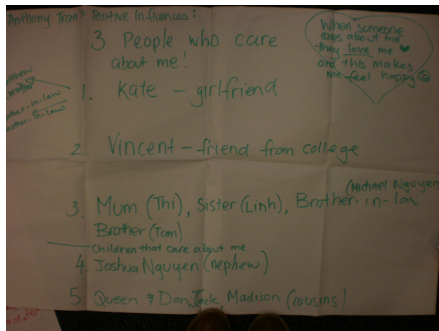 Anthony Tran's Positive Influences:
3 People who care
about me!
When someone
cares about me
they love me
and this makes
me feel happy
1. Kate - girlfriend
2. Vincent - friend from college
(Michael Nguyen
3. Mum (Thi), Sister (Linh), Brother-in-law
Brother (Tom)
Children that care about me
4. Joshua Nguyen (nephew)
5. Queen & Dan, Jack, Madison (cousins)